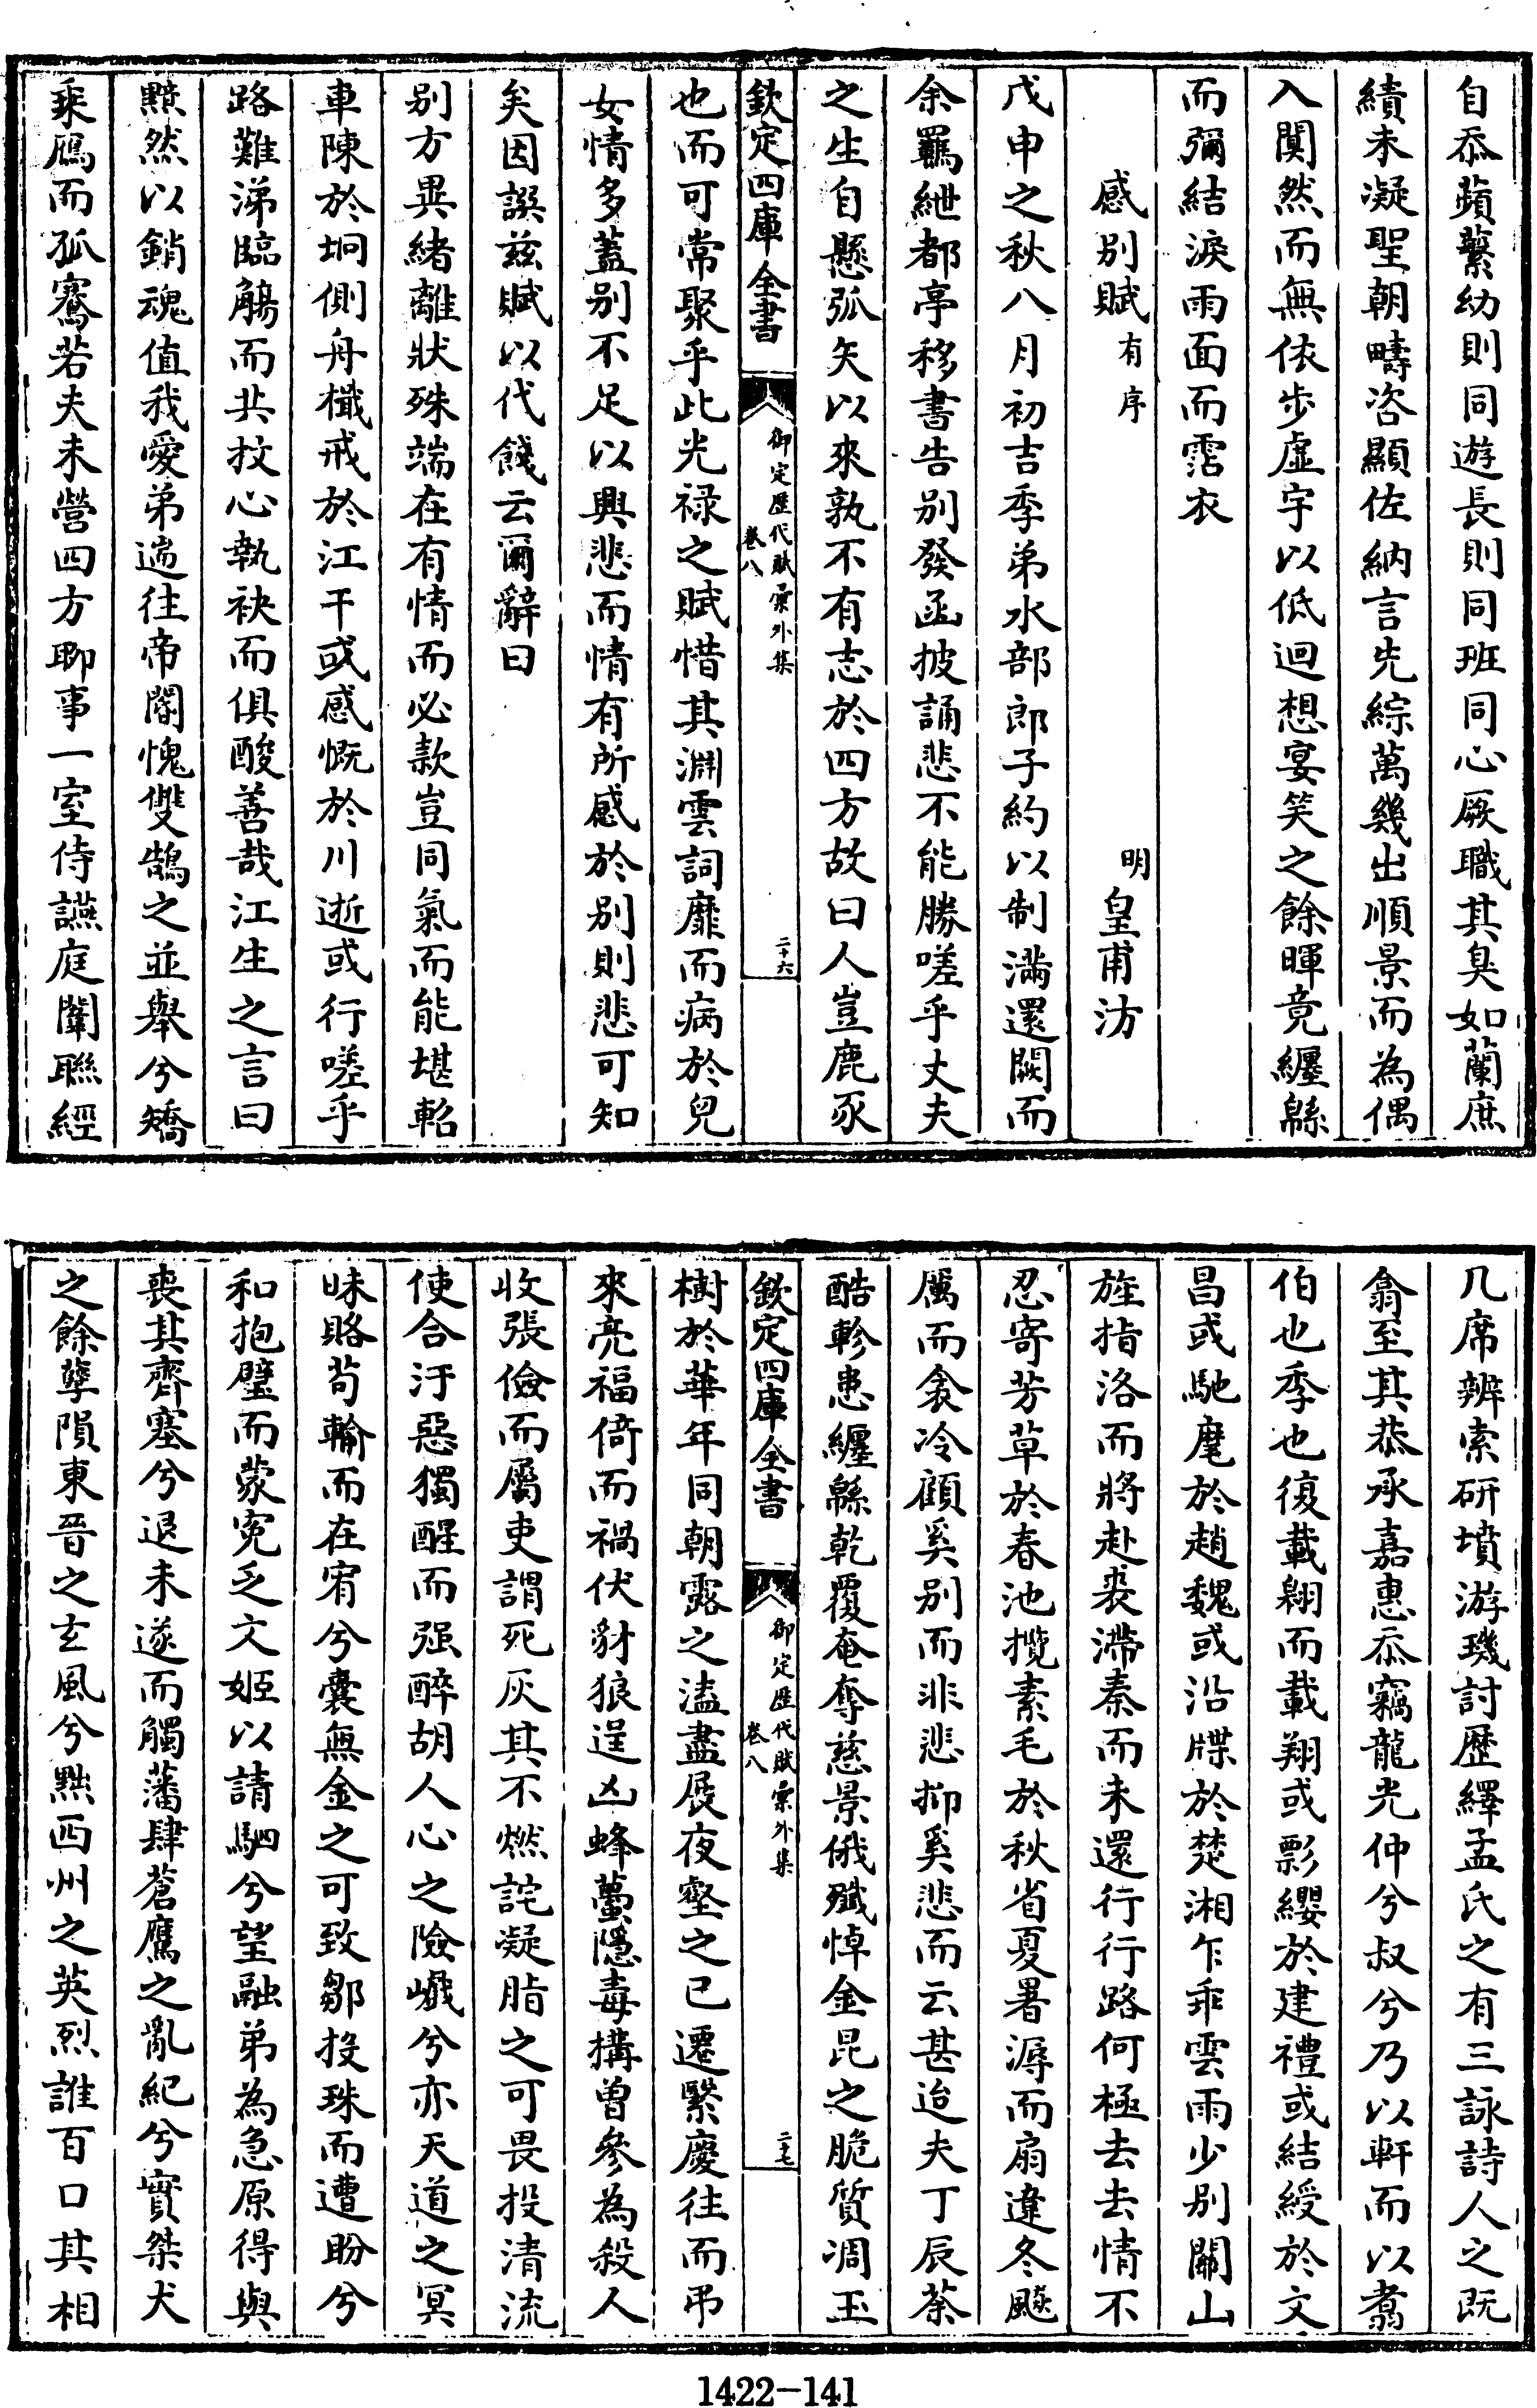 自忝蘋蘩幼則同遊長則同班同心厥職其臭如蘭庶
績未凝聖朝疇咨顯佐納言先綜萬幾出順景而為偶
入闃然而無依步虛宇以低迴想宴笑之餘暉竟纏緜
而彌結淚雨面而霑衣
感别賦有序 明皇甫汸
戊申之秋八月初吉季弟水部郎子約以制滿還闕而
余羈紲都亭移書告别發函披誦悲不能勝嗟乎丈夫
之生自懸弧矢以來孰不有志於四方故曰人豈鹿豕
欽定四庫全書 御定歷代賦彙外集 卷八 二十六
也而可常聚乎此光禄之賦惜其淵雲詞靡而病於兒
女情多蓋别不足以興悲而情有所感於别則悲可知
矣因譔兹賦以代餞云爾辭曰
别方異緒離狀殊端在有情而必款豈同氣而能堪軺
車陳於坰側舟檝戒於江干或感慨於川逝或行嗟乎
路難涕臨觴而共抆心執袂而俱酸善哉江生之言曰
黯然以銷魂值我愛弟遄往帝閽愧雙鵠之並舉兮矯
乘鴈而孤騫若夫未營四方聊事一室侍讌庭闈聯經
几席辨索研墳游璣討歷繹孟氏之有三詠詩人之既
翕至其恭承嘉惠忝竊龍光仲兮叔兮乃以軒而以翥
伯也季也復載翺而載翔或影纓於建禮或結綬於文
昌或馳麾於趙魏或沿牒於楚湘乍乖雲雨少别關山
旌指洛而將赴裘滯秦而未還行行路何極去去情不
忍寄芳草於春池攬素毛於秋省夏暑溽而扇違冬飈
厲而衾冷顧奚别而非悲抑奚悲而云甚迨夫丁辰荼
酷軫患纏緜乾覆奄奪慈景俄殲悼金昆之脆質凋玉
欽定四庫全書 御定歷代賦彙外集 卷八 二十七
樹於華年同朝露之溘盡展夜壑之已遷緊慶往而弔
來亮福倚而禍伏豺狼逞凶蜂蠆隱毒搆曾參為殺人
收張儉而屬吏謂死灰其不燃詫凝脂之可畏投清流
使合汙惡獨醒而强醉胡人心之險巇兮亦天道之冥
昧賂苟輸而在宥兮囊無金之可致鄒投珠而遭盼兮
和抱璧而蒙寃乏文姬以請駟兮望融弟為急原得與
喪其齊塞兮退未遂而觸藩肆蒼鷹之亂紀兮實桀犬
之餘孽隕東晉之玄風兮黜西州之英烈誰百口其相
1422-141